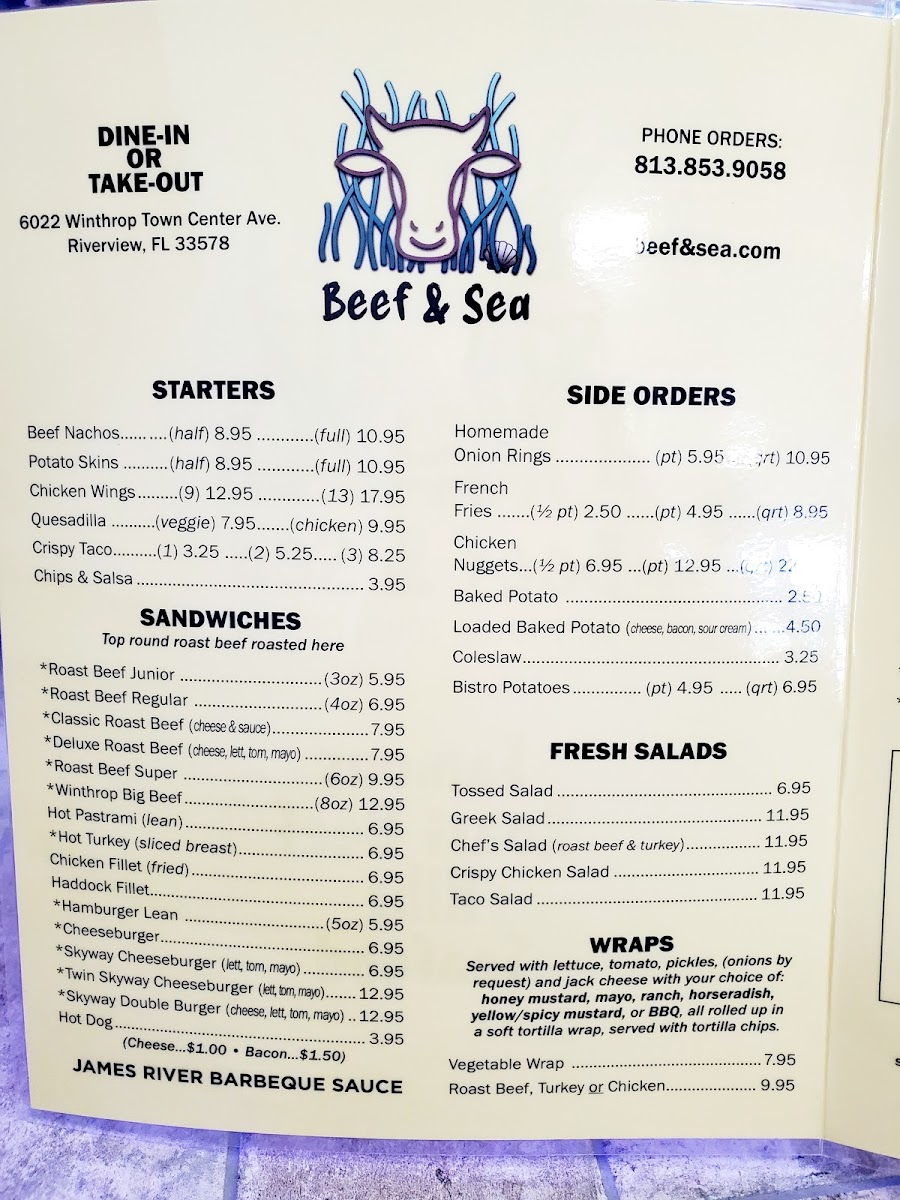 DINE-IN
OR
TAKE-OUT
6022 Winthrop Town Center Ave.
Riverview, FL 33578
Beef & Sea
PHONE ORDERS:
813.853.9058
beef&sea.com
STARTERS
Beef Nachos.........(half) 8.95 ............(full) 10.95
Potato Skins .........(half) 8.95 ............(full) 10.95
Chicken Wings.........(9) 12.95 .............(13) 17.95
Quesadilla .........(veggie) 7.95.......(chicken) 9.95
Crispy Taco.........(1) 3.25 .....(2) 5.25..... (3) 8.25
Chips & Salsa ............................................ 3.95
SANDWICHES
Top round roast beef roasted here
*Roast Beef Junior ...........................(3oz) 5.95
*Roast Beef Regular .........................(4oz) 6.95
*Classic Roast Beef (cheese & sauce)....................7.95
*Deluxe Roast Beef (cheese, lett, tom, mayo) .............7.95
*Roast Beef Super ...........................(6oz) 9.95
*Winthrop Big Beef.........................(8oz) 12.95
Hot Pastrami (lean)................................... 6.95
*Hot Turkey (sliced breast)......................... 6.95
Chicken Fillet (fried).................................. 6.95
Haddock Fillet.......................................... 6.95
*Hamburger Lean ...........................(5oz) 5.95
*Cheeseburger........................................ 6.95
*Skyway Cheeseburger (lett, tom, mayo) ............. 6.95
*Twin Skyway Cheeseburger (lett, tom, mayo)....... 12.95
*Skyway Double Burger (cheese, lett, tom, mayo) .. 12.95
Hot Dog................................................. 3.95
(Cheese...$1.00 • Bacon...$1.50)
JAMES RIVER BARBEQUE SAUCE
SIDE ORDERS
Homemade
Onion Rings .................... (pt) 5.95 ... (qrt) 10.95
French
Fries .......(½ pt) 2.50 ......(pt) 4.95 ......(qrt) 8.95
Chicken
Nuggets...(½ pt) 6.95 ...(pt) 12.95 ...
Baked Potato .............................................. 2.50
Loaded Baked Potato (cheese, bacon, sour cream) ... ...4.50
Coleslaw...................................................... 3.25
Bistro Potatoes.............. (pt) 4.95 ..... (qrt) 6.95
FRESH SALADS
Tossed Salad .............................................. 6.95
Greek Salad............................................... 11.95
Chef's Salad (roast beef & turkey)................. 11.95
Crispy Chicken Salad ............................... 11.95
Taco Salad ............................................... 11.95
WRAPS
Served with lettuce, tomato, pickles, (onions by
request) and jack cheese with your choice of:
honey mustard, mayo, ranch, horseradish,
yellow/spicy mustard, or BBQ, all rolled up in
a soft tortilla wrap, served with tortilla chips.
Vegetable Wrap ........................................ 7.95
Roast Beef, Turkey or Chicken................... 9.95